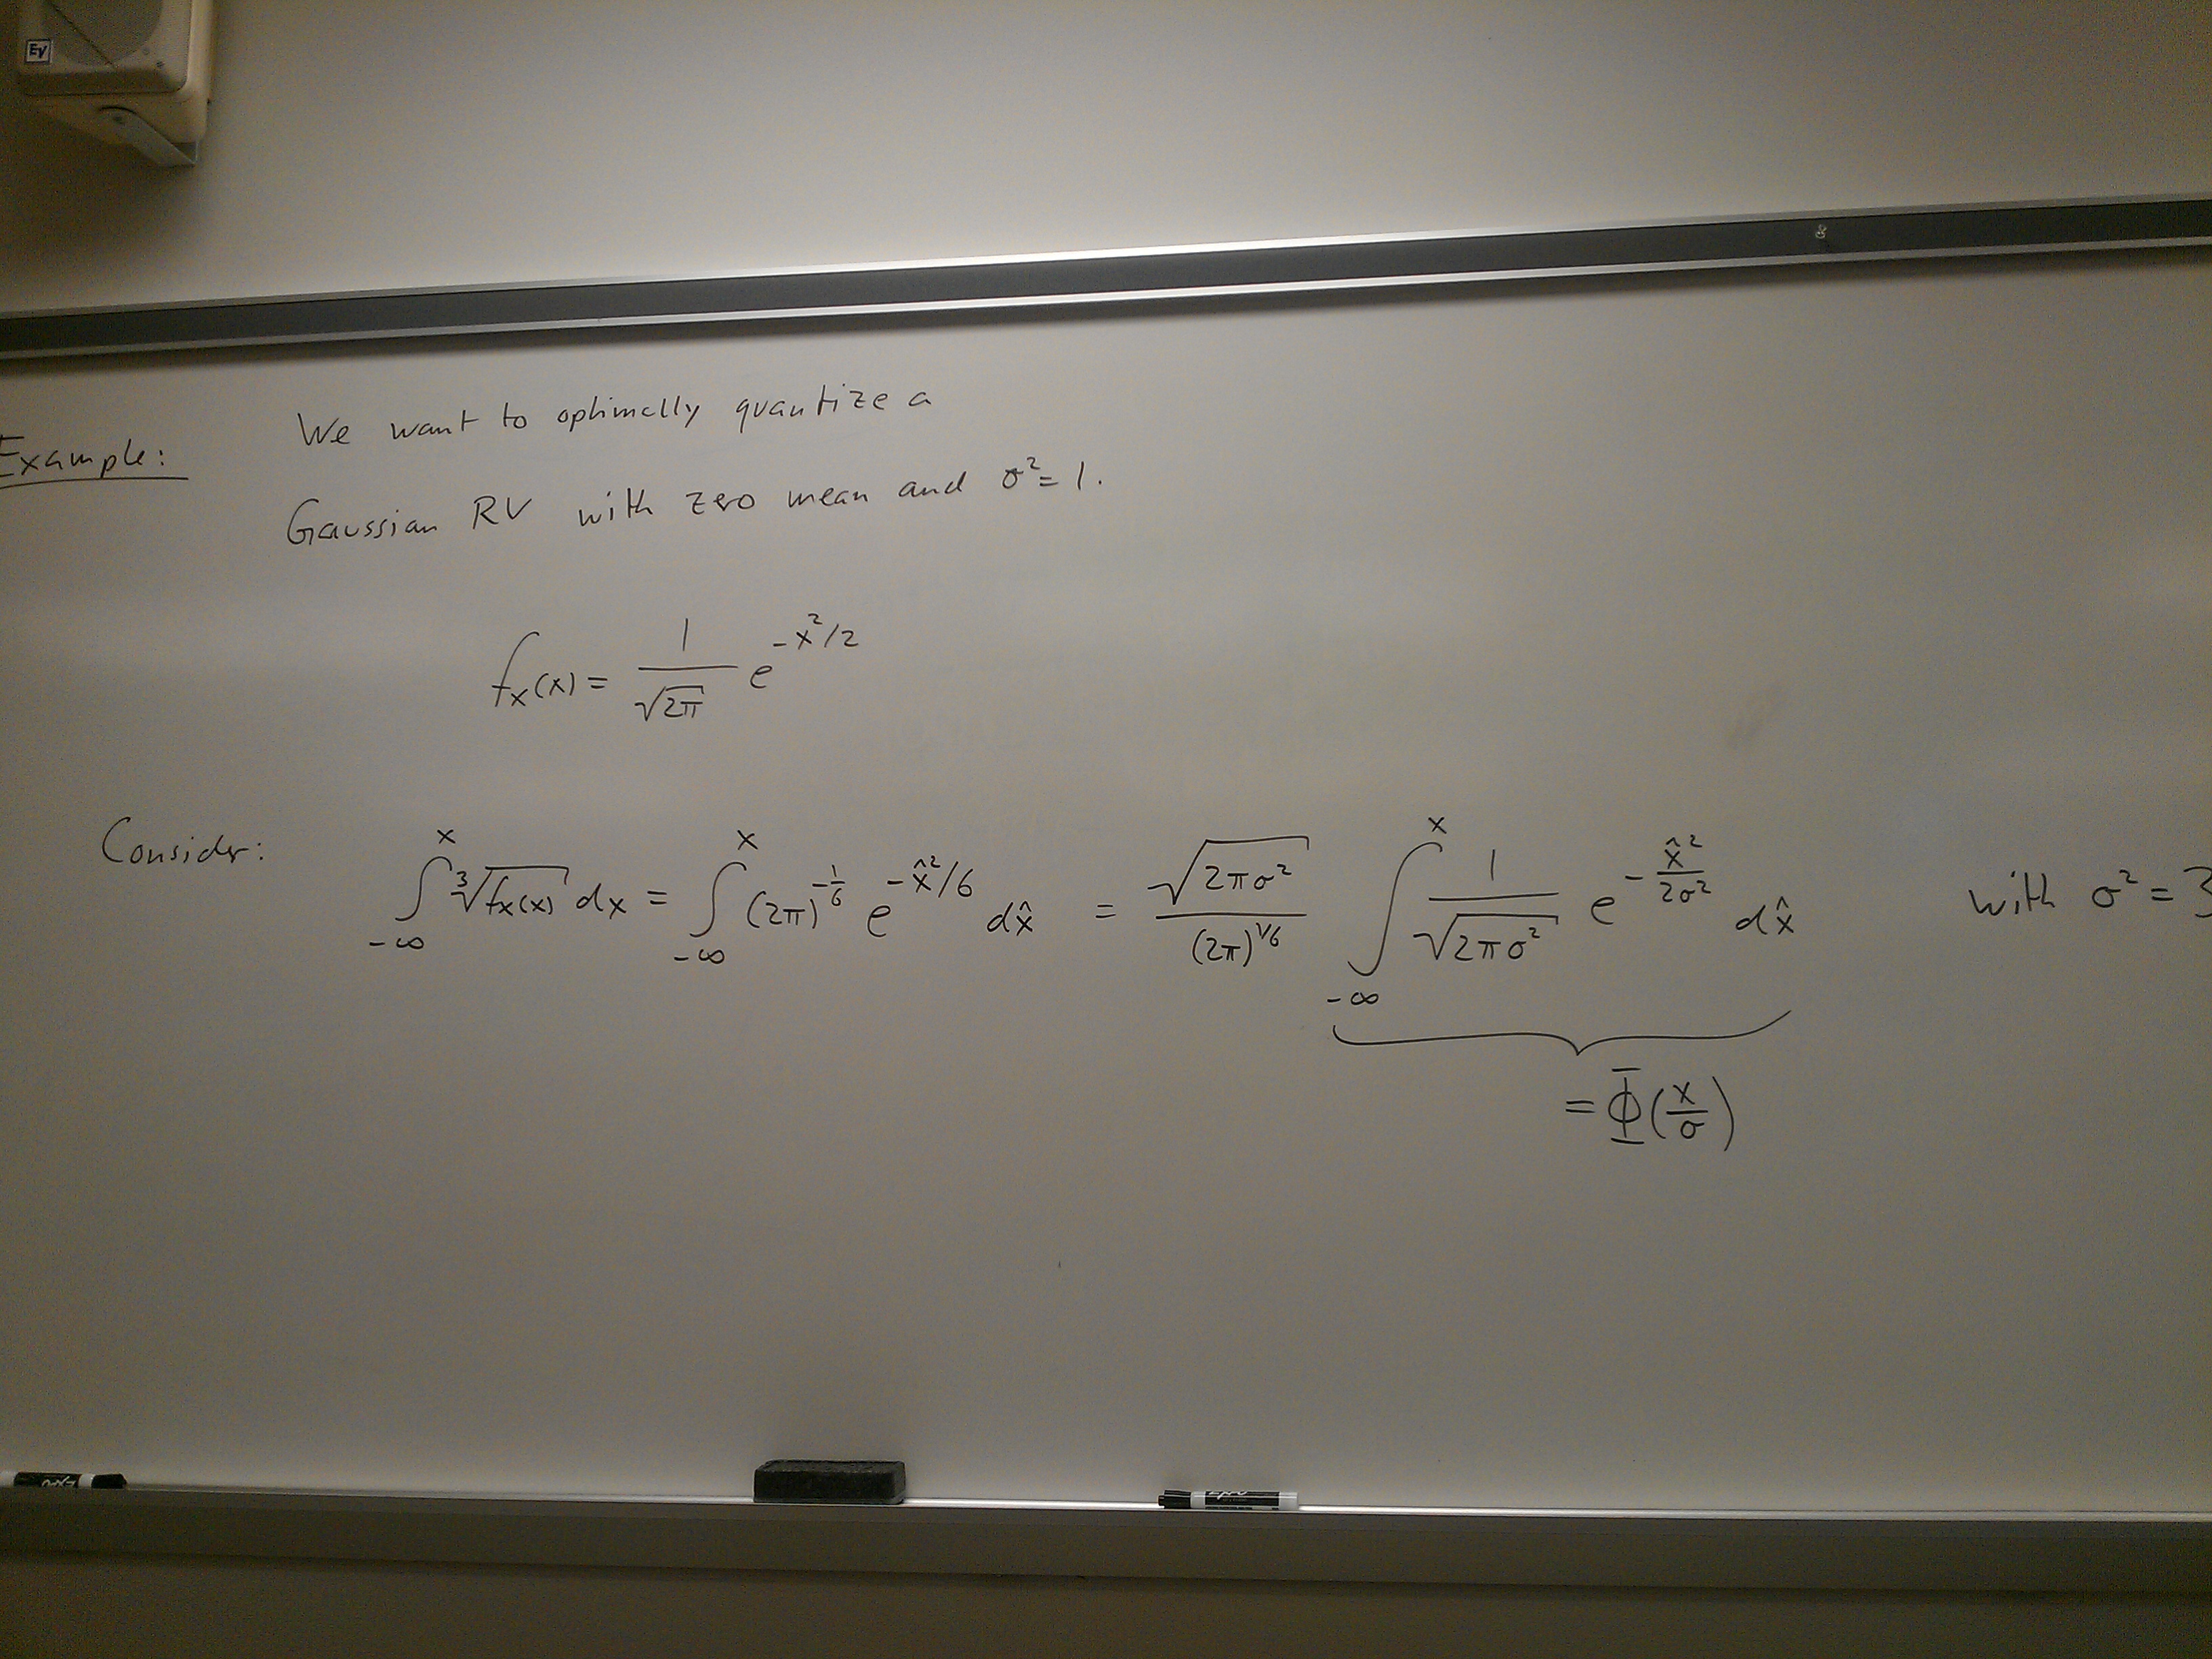 EV
We want to optimally quantize a
Example:
Gaussian RV with zero mean and σ² = 1.
f_X(x) = 1/√(2π) e^(-x²/2)
Consider: ∫_{-∞}^{x} ³√(f_X(x)) dx = ∫_{-∞}^{x} (2π)^(-1/6) e^(-x̂²/6) dx̂ = √(2πσ²)/(2π)^(1/6) ∫_{-∞}^{x} 1/√(2πσ²) e^(-x̂²/(2σ²)) dx̂ with σ² = 3
= Φ(x/σ)